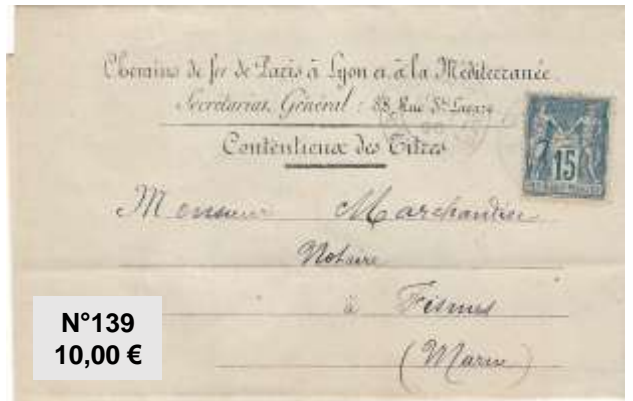 Chemins de fer de Paris à Lyon et à la Méditerranée
Secrétariat Général : 88, Rue St Lazare
Contentieux des Titres
15
Monsieur
Notaire
à Fismes
(Marne)
N°139
10,00 €